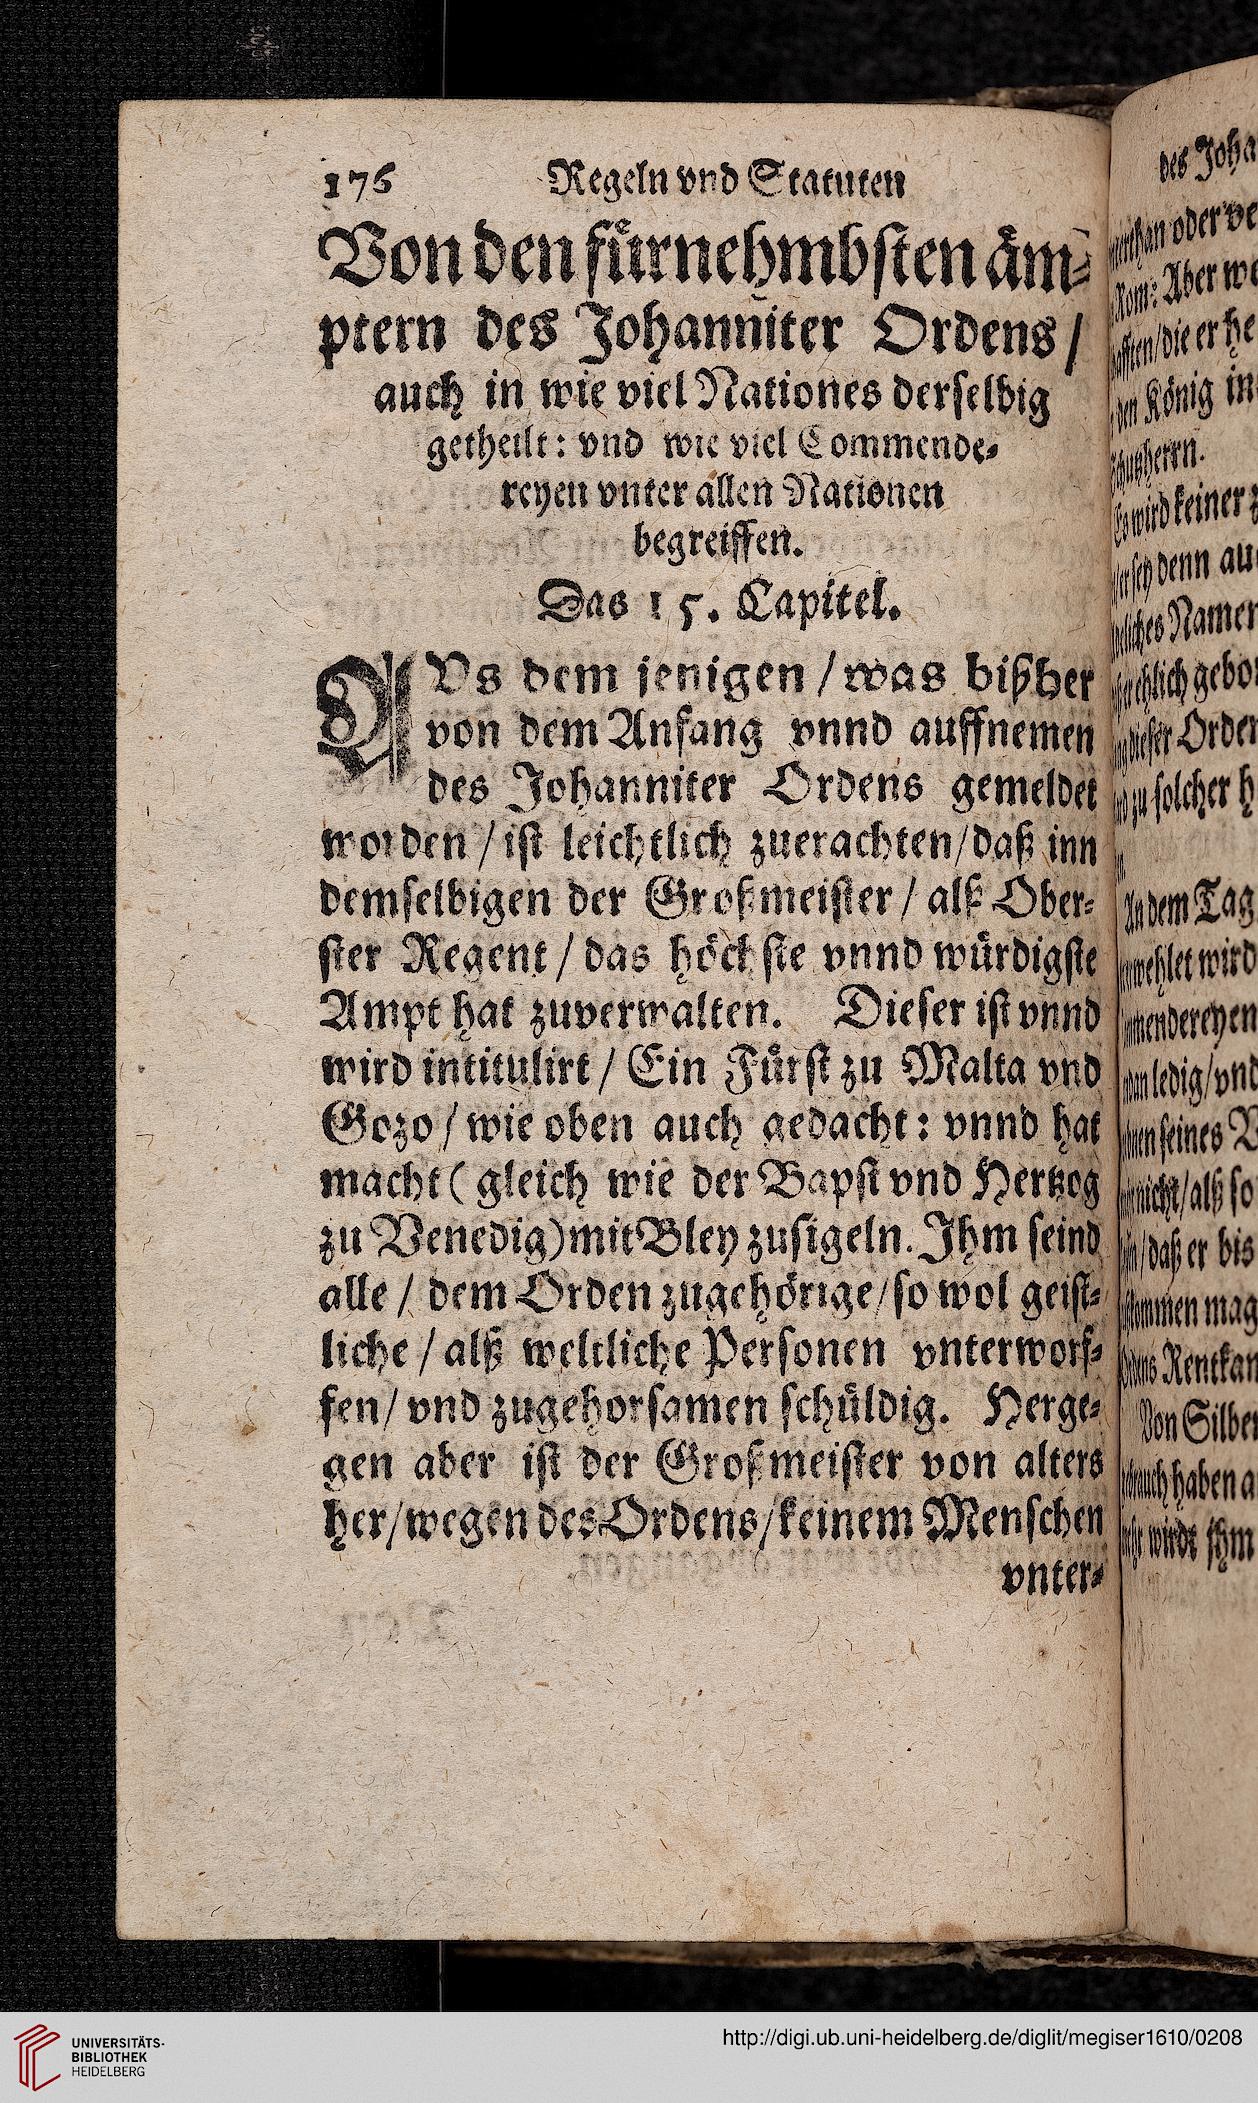 176 Regeln vnd Statuten
Von den fürnehmbsten äm-
ptern des Johanniter Ordens /
auch in wie viel Nationes derselbig
getheilt: vnd wie viel Commende-
reyen vnter allen Nationen
begreiffen.
Das 15. Capitel.
AVs dem jenigen / was bißher
von dem Anfang vnnd auffnemen
des Johanniter Ordens gemeldet
worden / ist leichtlich zuerachten / daß inn
demselbigen der Großmeister / alß Ober-
ster Regent / das höchste vnnd würdigste
Ampt hat zuverwalten. Dieser ist vnnd
wird intitulirt / Ein Fürst zu Malta vnd
Gozo / wie oben auch gedacht: vnnd hat
macht ( gleich wie der Bapst vnd Hertzog
zu Venedig) mit Bley zusigeln. Ihm seind
alle / dem Orden zugehörige / so wol geist-
liche / alß weltliche Personen vnterworf-
fen / vnd zugehorsamen schüldig. Herge-
gen aber ist der Großmeister von alters
her / wegen des Ordens / keinem Menschen
vnter-
des Joha
oder ve
Rom: Aber we
die er he
den König in
Schutzherrn.
Es wird keiner z
sey denn au
Namen
ehlich gebo
dieser Orden
zu solcher h
An dem Tag
erwehlet wird
mmendereyen
ledig / vnd
seines V
nicht / alß so
/ daß er bis
kommen mag
Ordens Rentkam
Von Silber
gebrauch haben a
wirdt ihm
UNIVERSITÄTS-
BIBLIOTHEK
HEIDELBERG
http://digi.ub.uni-heidelberg.de/diglit/megiser1610/0208